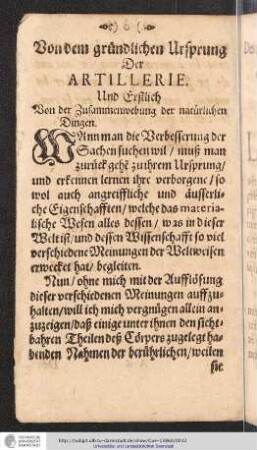 6
Von dem gründlichen Ursprung
Der
ARTILLERIE.
Und Erstlich
Von der Zusammenwebung der natürlichen
Dingen.
WAnn man die Verbesserung der
Sachen suchen wil / muß man
zurück gehẽ zu ihrem Ursprung /
und erkennen lernen ihre verborgene / so
wol auch angreiffliche und äusserli-
che Eigenschafften / welche das materia-
lische Wesen alles dessen / was in dieser
Welt ist / und dessen Wissenschafft so viel
verschiedene Meinungen der Weltweisen
erwecket hat / begleiten.
Nun / ohne mich mit der Aufflösung
dieser verschiedenen Meinungen auffzu-
halten / will ich mich vergnügen allein an-
zuzeigen / daß einige unter ihnen den sicht-
bahren Theilen deß Cörpers zugelegt ha-
benden Nahmen der berührlichen / weilen
sie